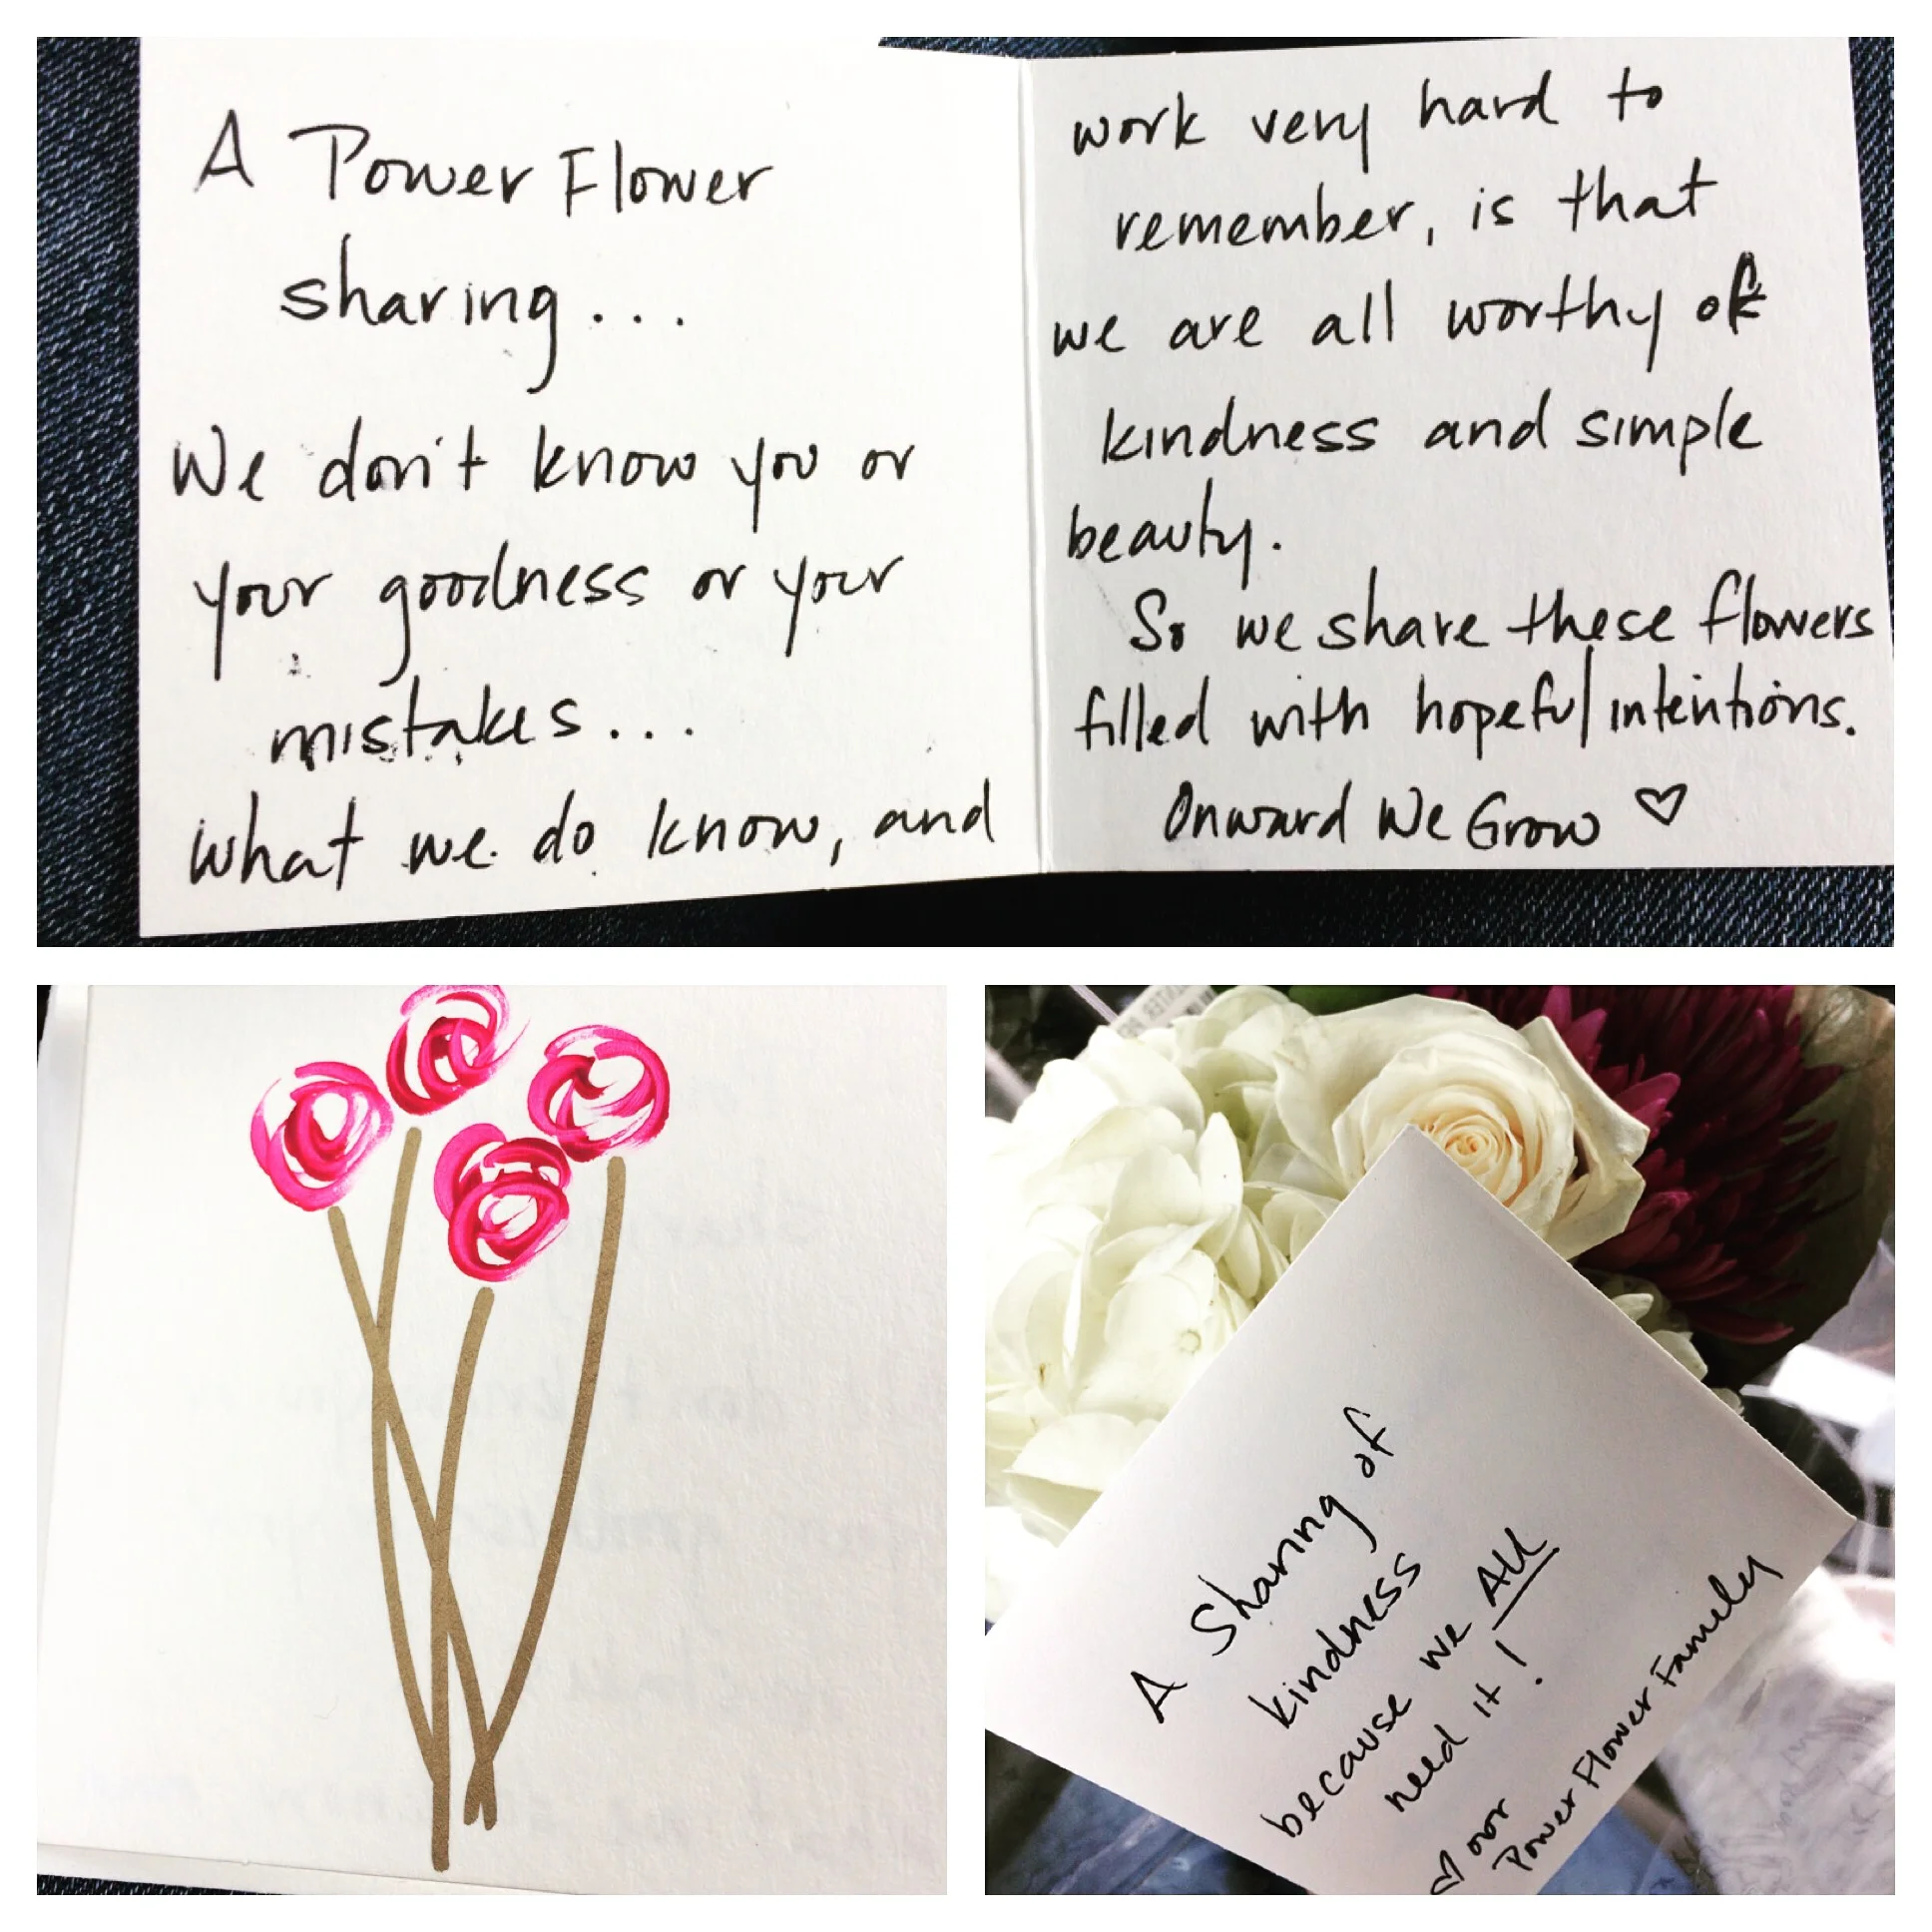 A Power Flower
sharing...
We don't know you or
your goodness or your
mistakes...
what we do know, and
work very hard to
remember, is that
we are all worthy of
kindness and simple
beauty.
So we share these flowers
filled with hopeful intentions.
Onward We Grow ♡
A Sharing of
kindness
because we ALL
need it!
♡ our
Power Flower Family